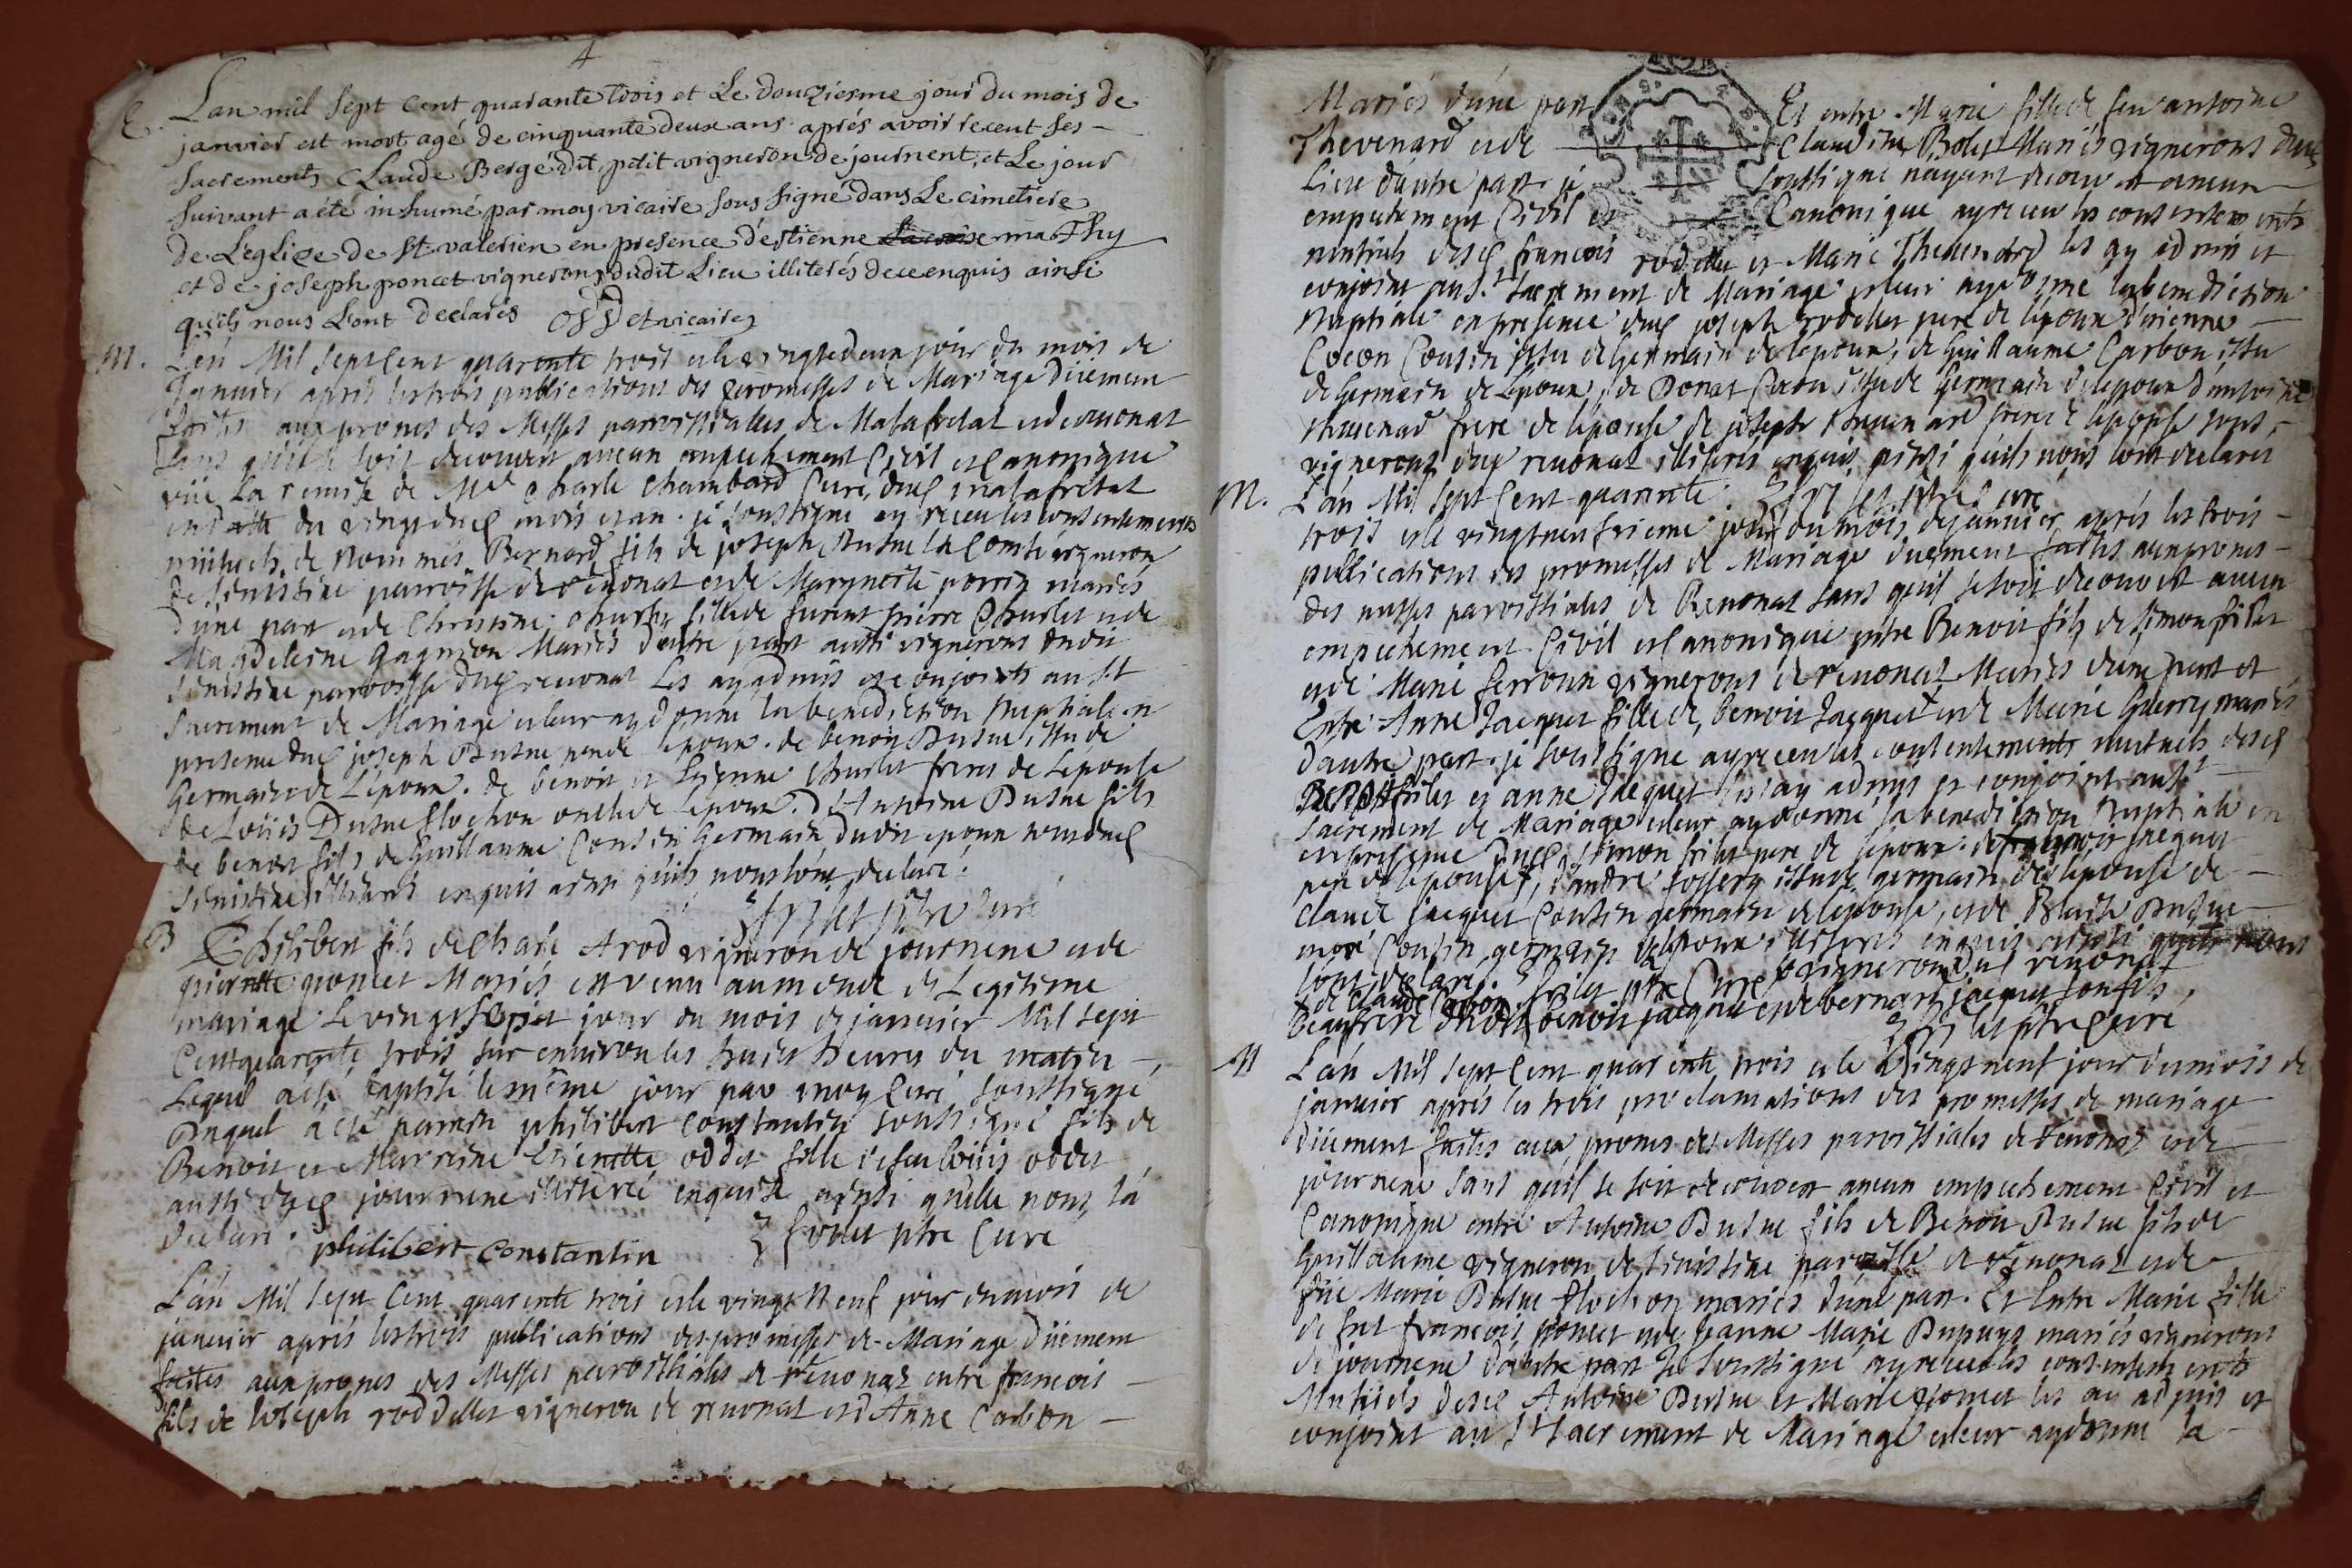 4
E. L'an mil sept cent quarante trois et Le douziesme jour du mois de
janvier est mort agé de cinquante deux ans aprés avoir receut ses
sacrements Claude Bergé dit petit vigneron de journent, et Le jour
suivant a été inhumé par moy vicaire sous signé dans Le cimetiere
de L'eglize de St valerien en presence d'estienne mathy
et de joseph poncet vignerons dudit Lieu illiterés de ce enquis ainsi
qu'ils nous L'ont declarés vicaire
M. L'an Mil sept Cent quarente trois et le vingtedeux jour du mois de
Janvier aprés les trois publications des promesses de Mariage düement
faites aux prones des Messes parroissialles de Malafretat et de revonat
sans qu'il se soit decouvert aucun empechement Civil et Canonique
vüe La remise de Mre Charle Chambard Curé dud malafretat
en datte du vingt dud mois et an. je soussigné ay receu les consentements
mütuels de nommés Bernard fils de joseph vigneron
de Senissiat parroisse de revonat et de mariés
d'une part et de Christine fille de pierre Charlet et de
Magdeleine Gagnion Mariés d'autre part aussi vignerons dudit
parroisse dud revonat Les ay admis et conjoints au st
Sacrement de Mariage et leur ay donné la benediction Nuptiale en
presence dud joseph pere de l'epoux. de benoit issu de
Germain de L'epoux. de benoit et Charlet freres de L'epouse
de Loüis oncle de L'epoux. D'Antoine fils
de benoit fils de Guillaume Cousin Germain dudit epoux tous dud
illiterés enquis ainsi qu'ils nous l'ont declaré.
ptre Curé
B Philibert fils de Charle Arod vigneron de journent et de
pierrette poncet Mariés est venu au monde de Legitime
mariage Le vingt jour du mois de janvier Mil sept
Cent quarente trois sur environ les huit heures du matin
Lequel a été baptisé le même jour par moy Curé soussigné
Duquel a été parrain philibert Constantin soussigné fils de
Benoit et Marreine oddet fille de feu loüis oddet
aussi dud journent illiterée enquise ainsi qu'elle nous l'a
declaré. philibert Constantin ptre Curé
L'an Mil sept Cent quarente trois et le vingt Neuf jour du mois de
janvier aprés les trois publications des promesses de Mariage düement
faites aux prones des Messes parroissiales de revonat entre francois
fils de Joseph roddellet vigneron de revonat et d'Anne Carbon
Mariés d'une part Et entre Marie fille de feu antoine
Thevenard et de Claudine Bolet Mariés vignerons dud
Lieu d'autre part. je soussigné n'ayant decouvert aucun
empechement Civil et Canonique ay receu les consentements
mutuels desd francois rodellet et Marie Thevenard les ay admis et
conjoint au st. sacrement de Mariage et leur ay donné la benediction
Nuptiale en presence dud joseph rodellet pere de l'epoux d'etienne
Cocon Cousin issu de Germain de l'epoux, de Guillaume Carbon issu
de Germain de L'epoux, de Donat issu de Germain de l'epoux d'antoine
thevenard frere de l'epouse de joseph thevenard frere de l'epouse tous
vignerons dud revonat illiterés enquis ainsi qu'ils nous l'ont declarés
M. L'an Mil sept Cent quarente ptre Curé
trois et le vingtneufvieme jour du mois de janvier, aprés les trois
publications des promesses de Mariage düement faites aux prones
des messes parroissiales de Revonat sans qu'il se soit decouvert aucun
empechement Civil et Canonique entre Benoit fils de Simon
et de Marie vignerons de revonat Mariés d'une part et
Entre Anne Jacquet fille de benoit Jacquet et de Marie Guerry mariés
d'autre part. je soussigné ay receu les consentements mutuels desd
et anne Jacquet les ay admis et conjoint au st
sacrement de Mariage et leur ay donné la benediction Nuptiale en
en presence dud Simon pere de l'epoux. de jacquet
pere de l'epouse, d'andré issu de germain de l'epouse de
claude jacquet Cousin germain de l'epouse, et de
Cousin germain de l'epoux illiterés enquis ainsi qu'ils nous
l'ont declaré. ptre Curé vignerons dud revonat
de Claude Carbon
beaufrere dudit benoit jacquet et de bernard jacquet son fils.
ptre Curé
M L'an Mil sept Cent quarente trois et le vingt neuf jour du mois de
janvier aprés les trois proclamations des promesses de mariage
düement faites aux prones des Messes parroissiales de revonat et de
journent sans qu'il se soit decouvert aucun empechement Civil et
Canonique entre Antoine fils de Benoit fils de
Guillaume vigneron de parroisse de revonat et de
füe Marie mariés d'une part. Et Entre Marie fille
de feu francois poncet et de Jeanne Marie Dupuys mariés vignerons
de journent d'autre part Je soussigné ay receu les consentements
Mutuels desd Antoine et Marie poncet les ay admis et
conjoint au st sacrement de Mariage et leur ay donné la